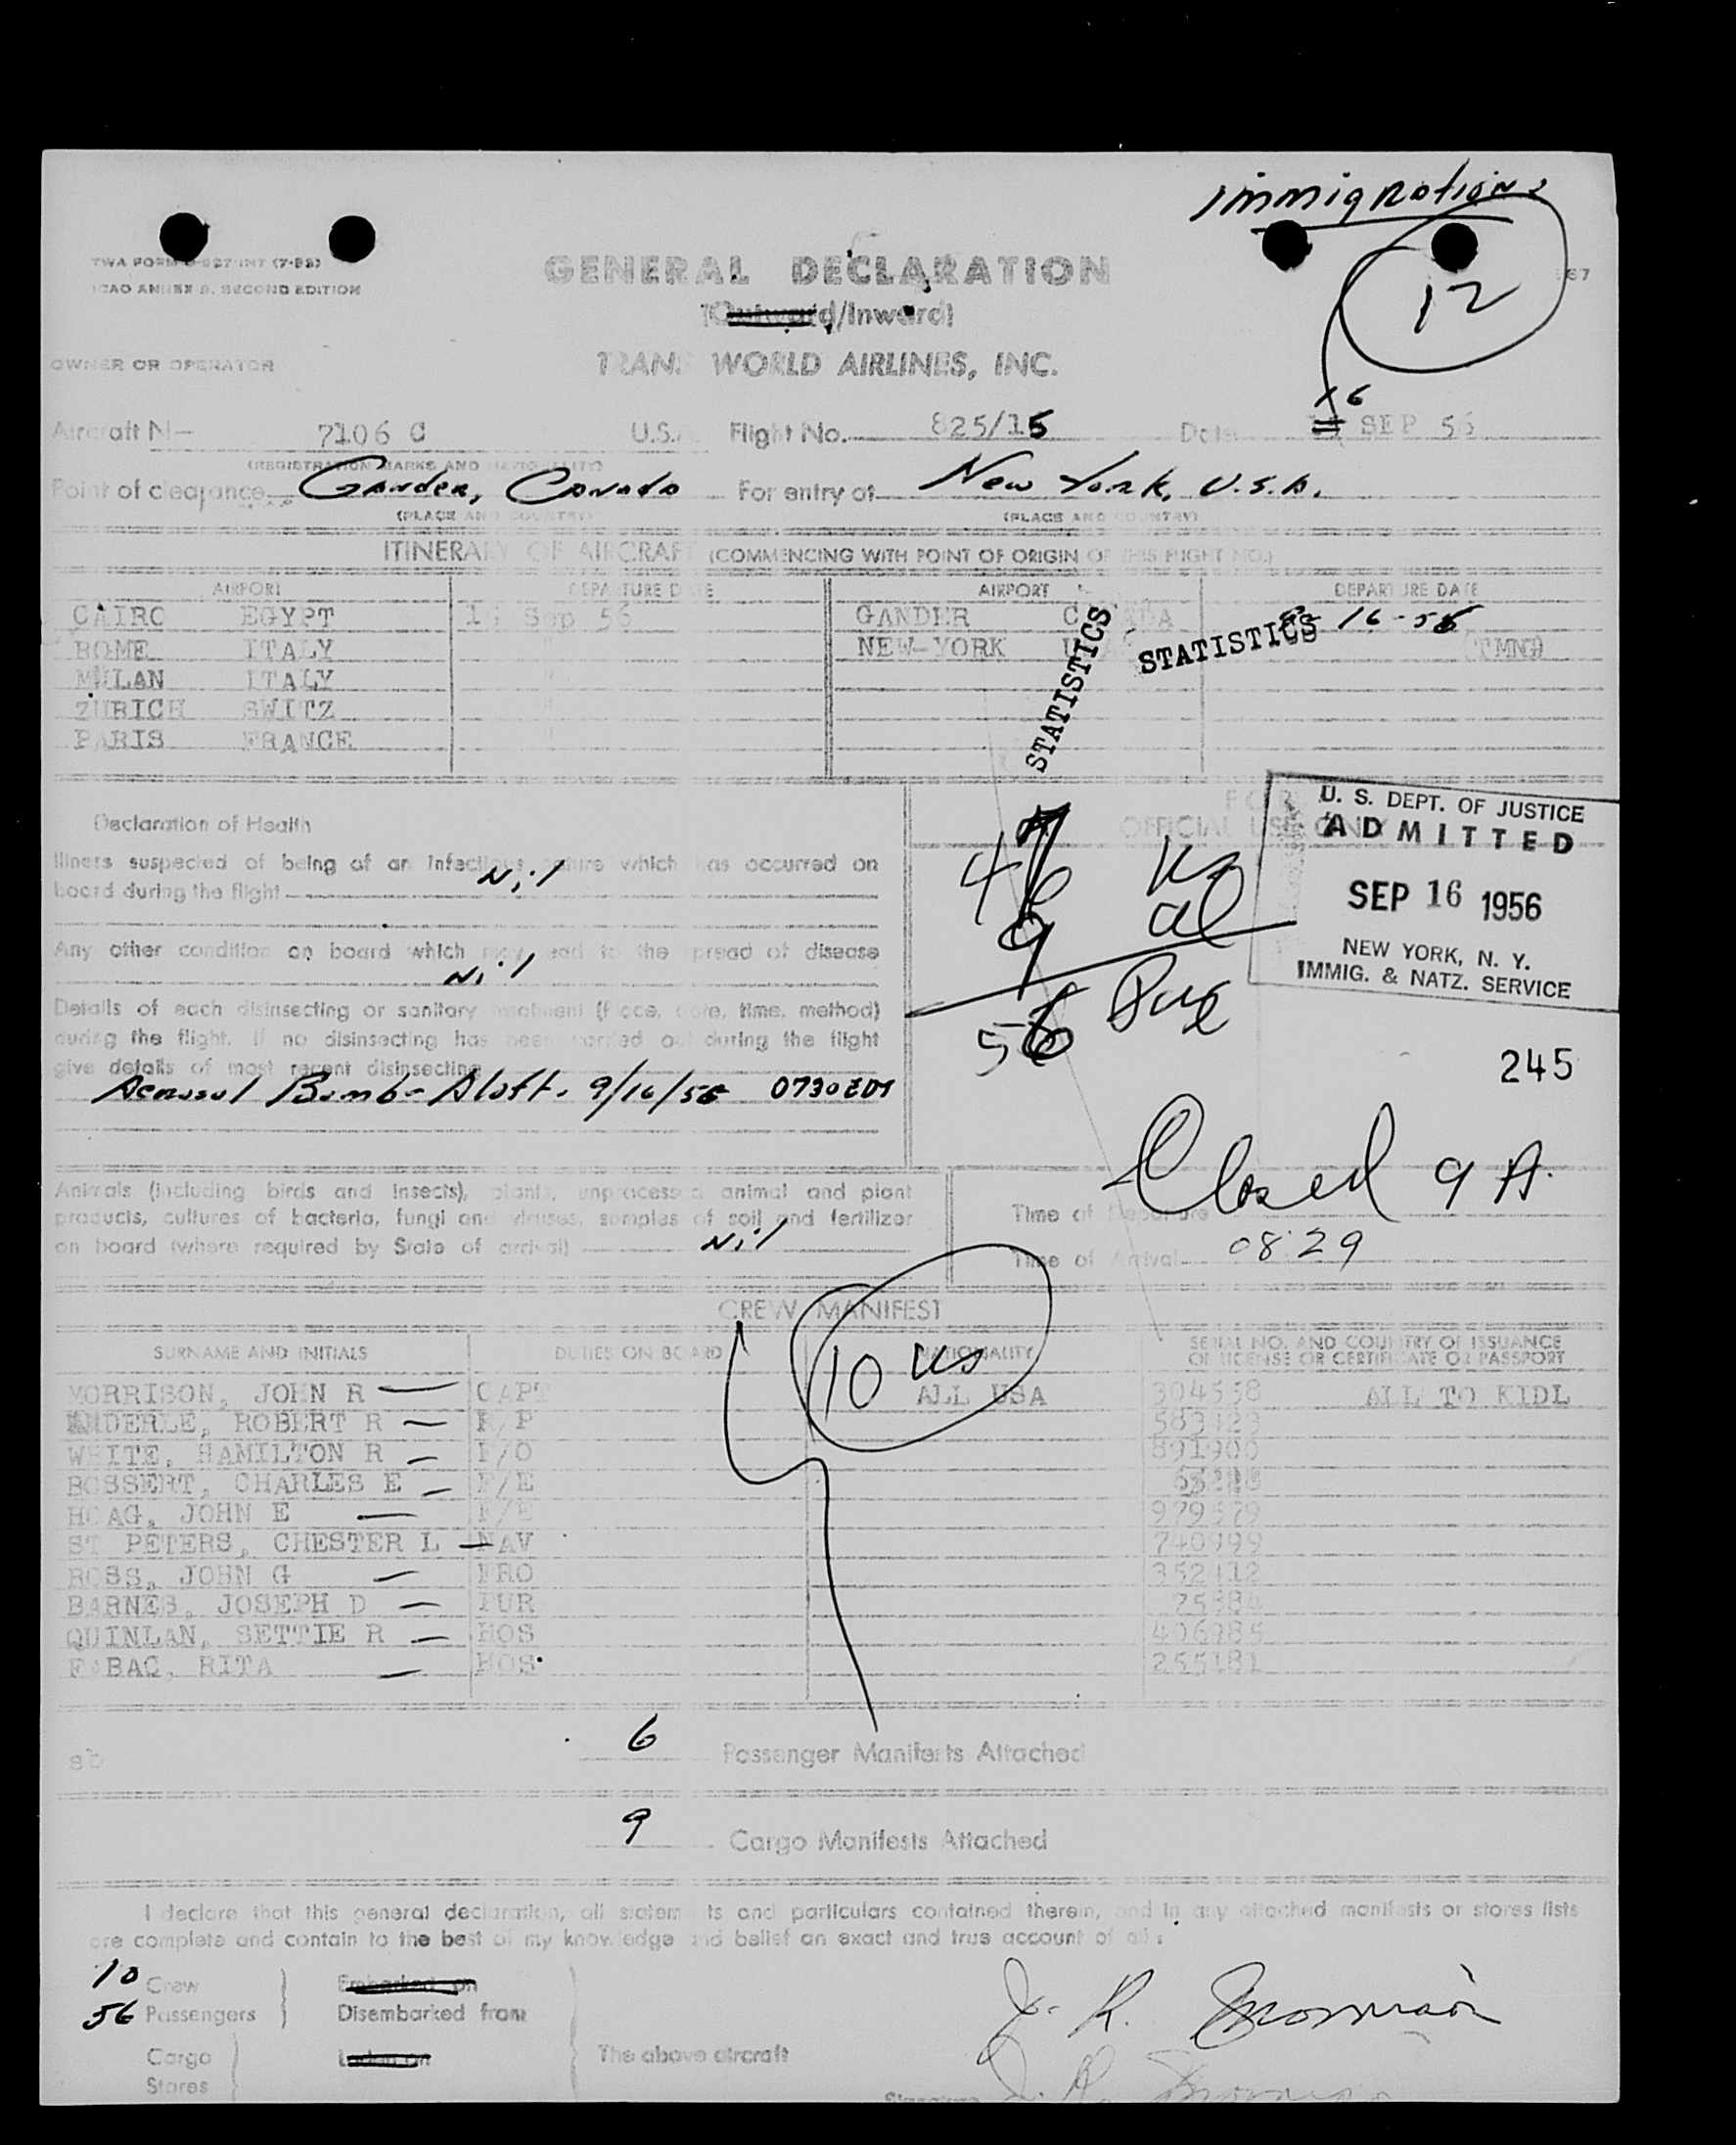 immigration
12
TWA FORM (7-53)
ICAO ANNEX 9, SECOND EDITION
GENERAL DECLARATION
(Outward/Inward)
OWNER OR OPERATOR
TRANS WORLD AIRLINES, INC.
Aircraft N— 7106 C U.S.A. Flight No. 825/15 Date 16 SEP 56
(REGISTRATION MARKS AND NATIONALITY)
Point of clearance Gander, Canada For entry at New York, U.S.A.
(PLACE AND COUNTRY) (PLACE AND COUNTRY)
ITINERARY OF AIRCRAFT (COMMENCING WITH POINT OF ORIGIN OF THIS FLIGHT NO.)
AIRPORT DEPARTURE DATE AIRPORT DEPARTURE DATE
CAIRO EGYPT Sep 56 GANDER CANADA 16-56
ROME ITALY NEW-YORK (TMNG)
MILAN ITALY
ZURICH SWITZ
PARIS FRANCE
STATISTICS
STATISTICS
FOR
OFFICIAL USE ONLY
U. S. DEPT. OF JUSTICE
ADMITTED
SEP 16 1956
NEW YORK, N. Y.
IMMIG. & NATZ. SERVICE
Declaration of Health
Illness suspected of being of an infectious nature which has occurred on
board during the flight Nil
Any other condition on board which may lead to the spread of disease
Nil
Details of each disinsecting or sanitary treatment (place, date, time, method)
during the flight. If no disinsecting has been carried out during the flight
give details of most recent disinsecting
Aerosol Bomb- Aloft. 9/16/56 0730 EDT
us
9 al
56 Pax
245
Closed 9 A.
Animals (including birds and insects), plants, unprocessed animal and plant
products, cultures of bacteria, fungi and viruses, samples of soil and fertilizer
on board (where required by State of arrival) Nil
Time of Departure
Time of Arrival 0829
CREW MANIFEST
10 us
SURNAME AND INITIALS DUTIES ON BOARD NATIONALITY SERIAL NO. AND COUNTRY OF ISSUANCE
OF LICENSE OR CERTIFICATE OR PASSPORT
MORRISON, JOHN R CAPT ALL USA 304558 ALL TO KIDL
ANDERLE, ROBERT R
WHITE, HAMILTON R F/O 891900
BOSSERT, CHARLES E F/E
HOAG, JOHN E F/E
ST PETERS, CHESTER L NAV 740999
ROSS, JOHN G PRO 352412
BARNES, JOSEPH D PUR
QUINLAN, SETTIE R HOS 406985
RITA HOS 255181
6 Passenger Manifests Attached
9 Cargo Manifests Attached
I declare that this general declaration, all statements and particulars contained therein, and in any attached manifests or stores lists
are complete and contain to the best of my knowledge and belief an exact and true account of all:
10 Crew Embarked on
56 Passengers Disembarked from
Cargo Laden on The above aircraft
Stores
J. R. Morrison
Signature J. R. Morrison